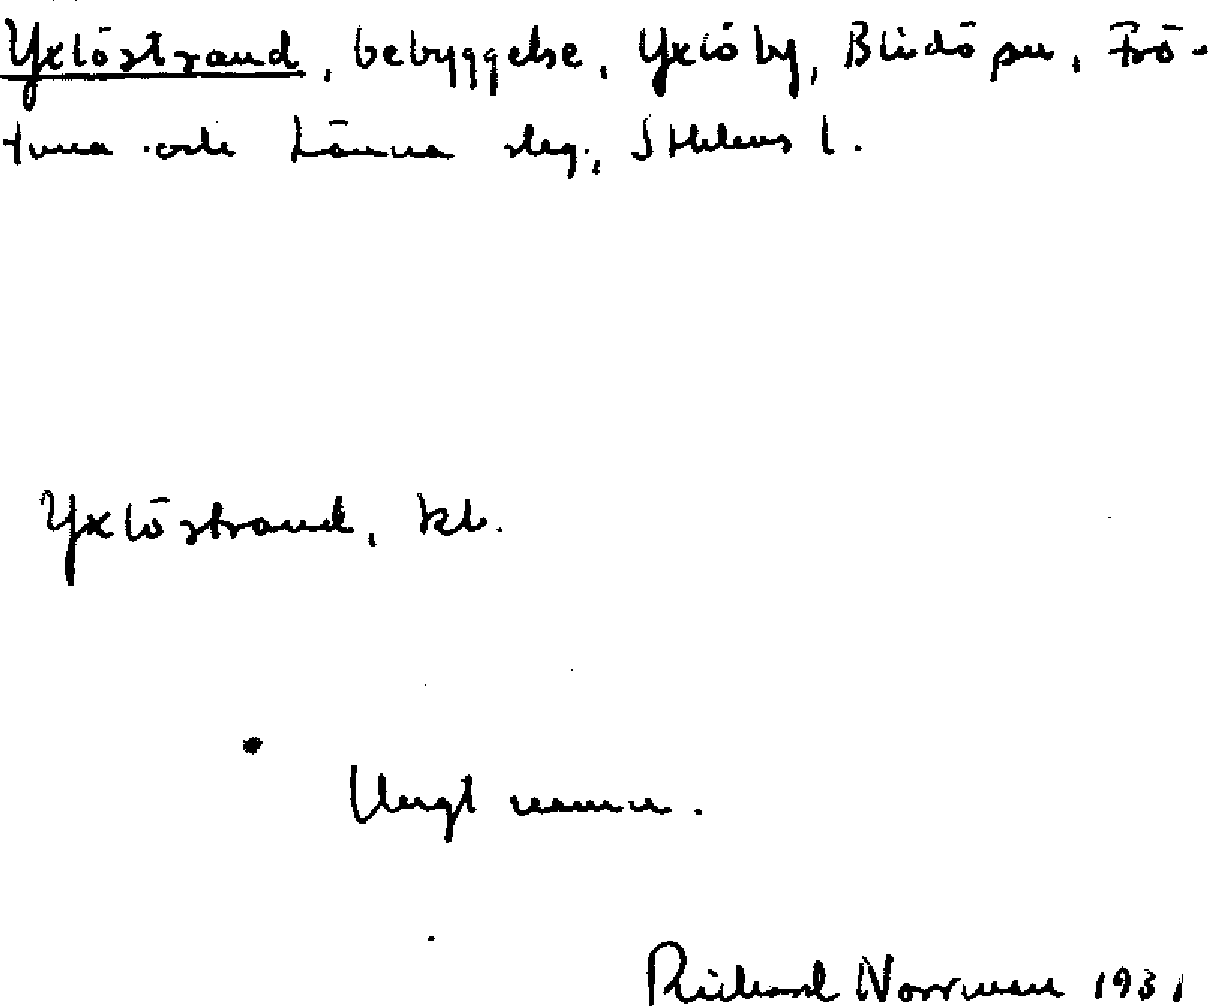 Yxlöstrand, bebyggelse, Yxlö by, Blidö sn, Frö-
tuna och Länna slag, Sthlms l.
Yxlöstrand, kb.
Ungt namn.
Richard Norrman 1931